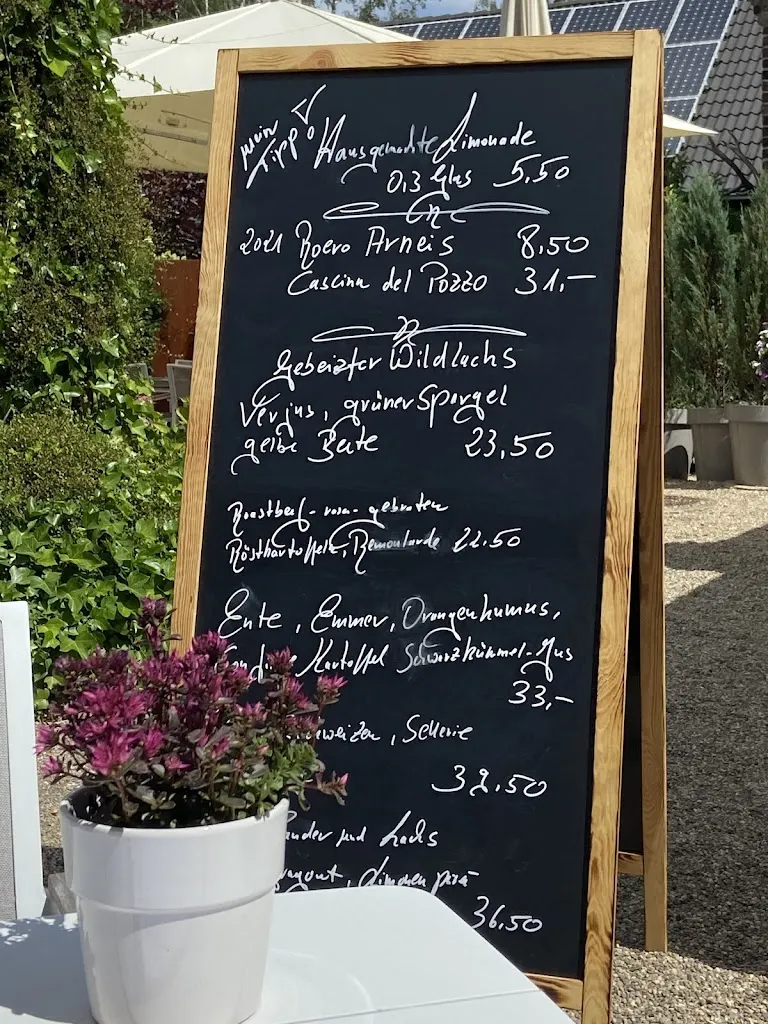 mein Tipp! Hausgemachte Limonade
0,3 Glas 5,50
2021 Roero Arneis 8,50
Cascina del Pozzo 31,–
Gebeizter Wildlachs
Verjus, grüner Spargel
gelbe Bete 23,50
Roastbeef - rosa - gebraten
Röstkartoffeln, Remoulade 22.50
Ente, Emmer, Orangenhumus,
Kartoffel Schwarzkümmel-Jus
33,–
weizen, Sellerie
32.50
ander und Lachs
agout, Limonen
36.50